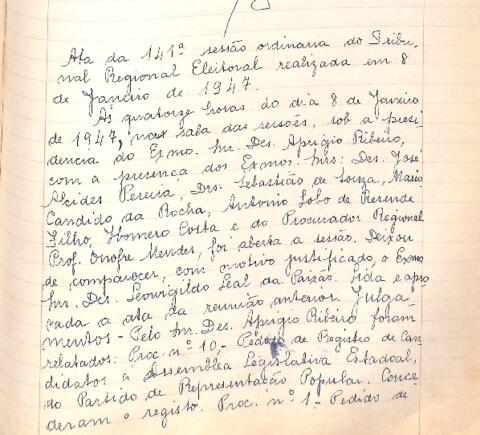 Ata da 141ª sessão ordinaria do Tribu-
nal Regional Eleitoral realizada em 8
de Janeiro de 1947.
Ás quatorze horas do dia 8 de Janeiro
de 1947, na sala das sessões, sob a presi-
dencia do Exmo. Snr. Des. Aprigio Ribeiro,
com a presença dos Exmos. Snrs: Des. José
Alcides Pereira, Drs. Sebastião de Souza, Mario
Candido da Rocha, Antonio Lobo de Resende
Filho, Homero Costa e do Procurador Regional
Prof. Onofre Mendes, foi aberta a sessão. Deixou
de comparecer, com motivo justificado, o Exmo
Snr. Des. Leovigildo Leal da Paixão. Lida e apro
vada a ata da reunião anterior. Julga-
mentos - Pelo Snr. Des. Aprigio Ribeiro foram
relatados: Proc. nº 10, - Pedido de Registo de Can
didatos á Assembléa Legislativa Estadoal,
do Partido de Representação Popular. Conce-
deram o registo. Proc. nº 1 - Pedido de